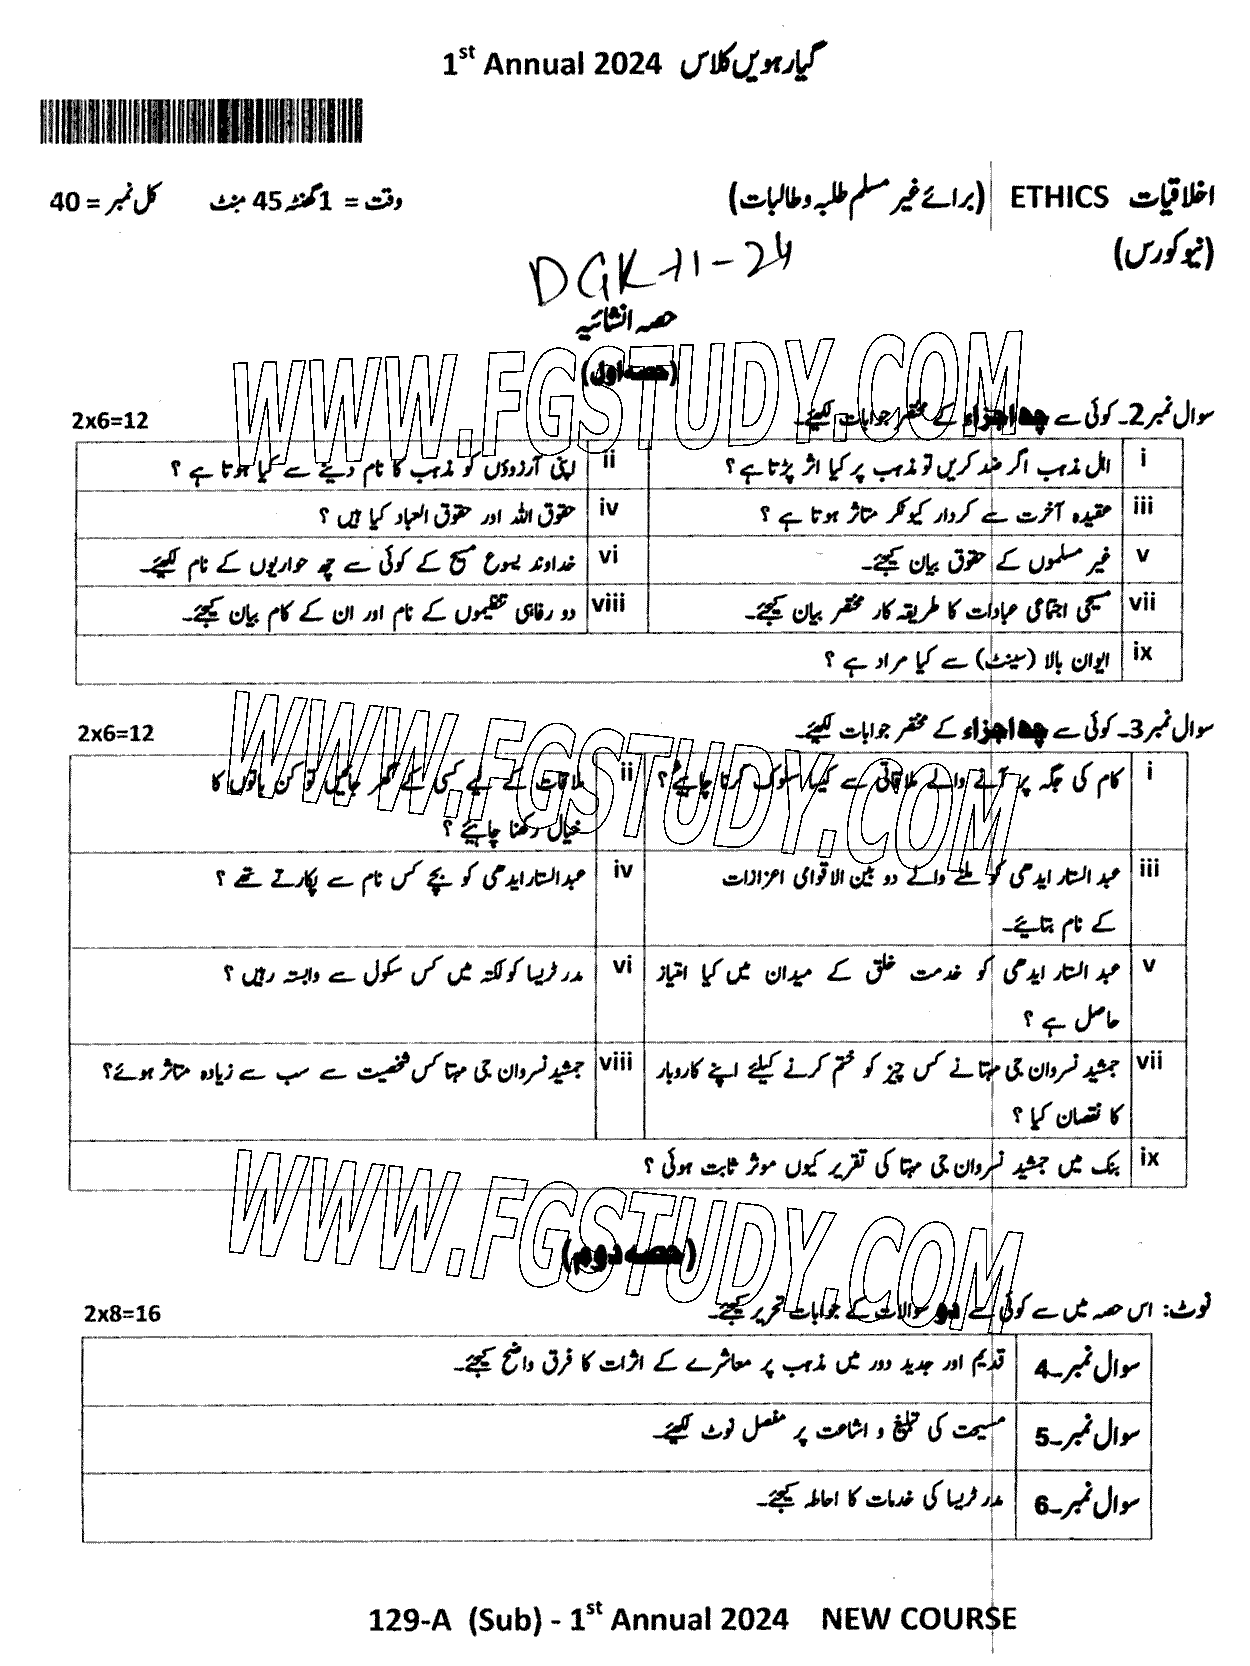 گیارہویں کلاس 1st Annual 2024
اخلاقیات ETHICS (برائے غیر مسلم طلبہ و طالبات) وقت = 1 گھنٹہ 45 منٹ کل نمبر = 40
(نیو کورس)
DGK-11-24
حصہ انشائیہ
(حصہ اول)
WWW.FGSTUDY.COM
سوال نمبر 2۔ کوئی سے چھ اجزاء کے مختصر جوابات لکھیئے۔ 2x6=12
i اہل مذہب اگر ضد کریں تو مذہب پر کیا اثر پڑتا ہے ؟
ii اپنی آرزوؤں کو مذہب کا نام دینے سے کیا ہوتا ہے ؟
iii عقیدہ آخرت سے کردار کیونکر متاثر ہوتا ہے ؟
iv حقوق اللہ اور حقوق العباد کیا ہیں ؟
v غیر مسلموں کے حقوق بیان کیجئے۔
vi خداوند یسوع مسیح کے کوئی سے چھ حواریوں کے نام لکھیئے۔
vii مسیحی اجتماعی عبادات کا طریقہ کار مختصر بیان کیجئے۔
viii دو رفاہی تنظیموں کے نام اور ان کے کام بیان کیجئے۔
ix ایوان بالا (سینٹ) سے کیا مراد ہے ؟
WWW.FGSTUDY.COM
سوال نمبر 3۔ کوئی سے چھ اجزاء کے مختصر جوابات لکھیئے۔ 2x6=12
i کام کی جگہ پر آنے والے ملاقاتی سے کیسا سلوک کرنا چاہیئے ؟
ii ملاقات کے لیے کسی کے گھر جائیں تو کن باتوں کا
خیال رکھنا چاہیئے ؟
iii عبد الستار ایدھی کو ملنے والے دو بین الاقوامی اعزازات
کے نام بتایئے۔
iv عبدالستار ایدھی کو بچے کس نام سے پکارتے تھے ؟
v عبد الستار ایدھی کو خدمت خلق کے میدان میں کیا امتیاز
حاصل ہے ؟
vi مدر ٹریسا کولکتہ میں کس سکول سے وابستہ رہیں ؟
vii جمشید نسروان جی مہتا نے کس چیز کو ختم کرنے کیلئے اپنے کاروبار
کا نقصان کیا ؟
viii جمشید نسروان جی مہتا کس شخصیت سے سب سے زیادہ متاثر ہوئے؟
ix بنک میں جمشید نسروان جی مہتا کی تقریر کیوں موثر ثابت ہوئی ؟
WWW.FGSTUDY.COM
(حصہ دوم)
نوٹ: اس حصہ میں سے کوئی سے دو سوالات کے جوابات تحریر کیجئے۔ 2x8=16
سوال نمبر۔4 قدیم اور جدید دور میں مذہب پر معاشرے کے اثرات کا فرق واضح کیجئے۔
سوال نمبر۔5 مسیحیت کی تبلیغ و اشاعت پر مفصل نوٹ لکھیئے۔
سوال نمبر۔6 مدر ٹریسا کی خدمات کا احاطہ کیجئے۔
129-A (Sub) - 1st Annual 2024 NEW COURSE